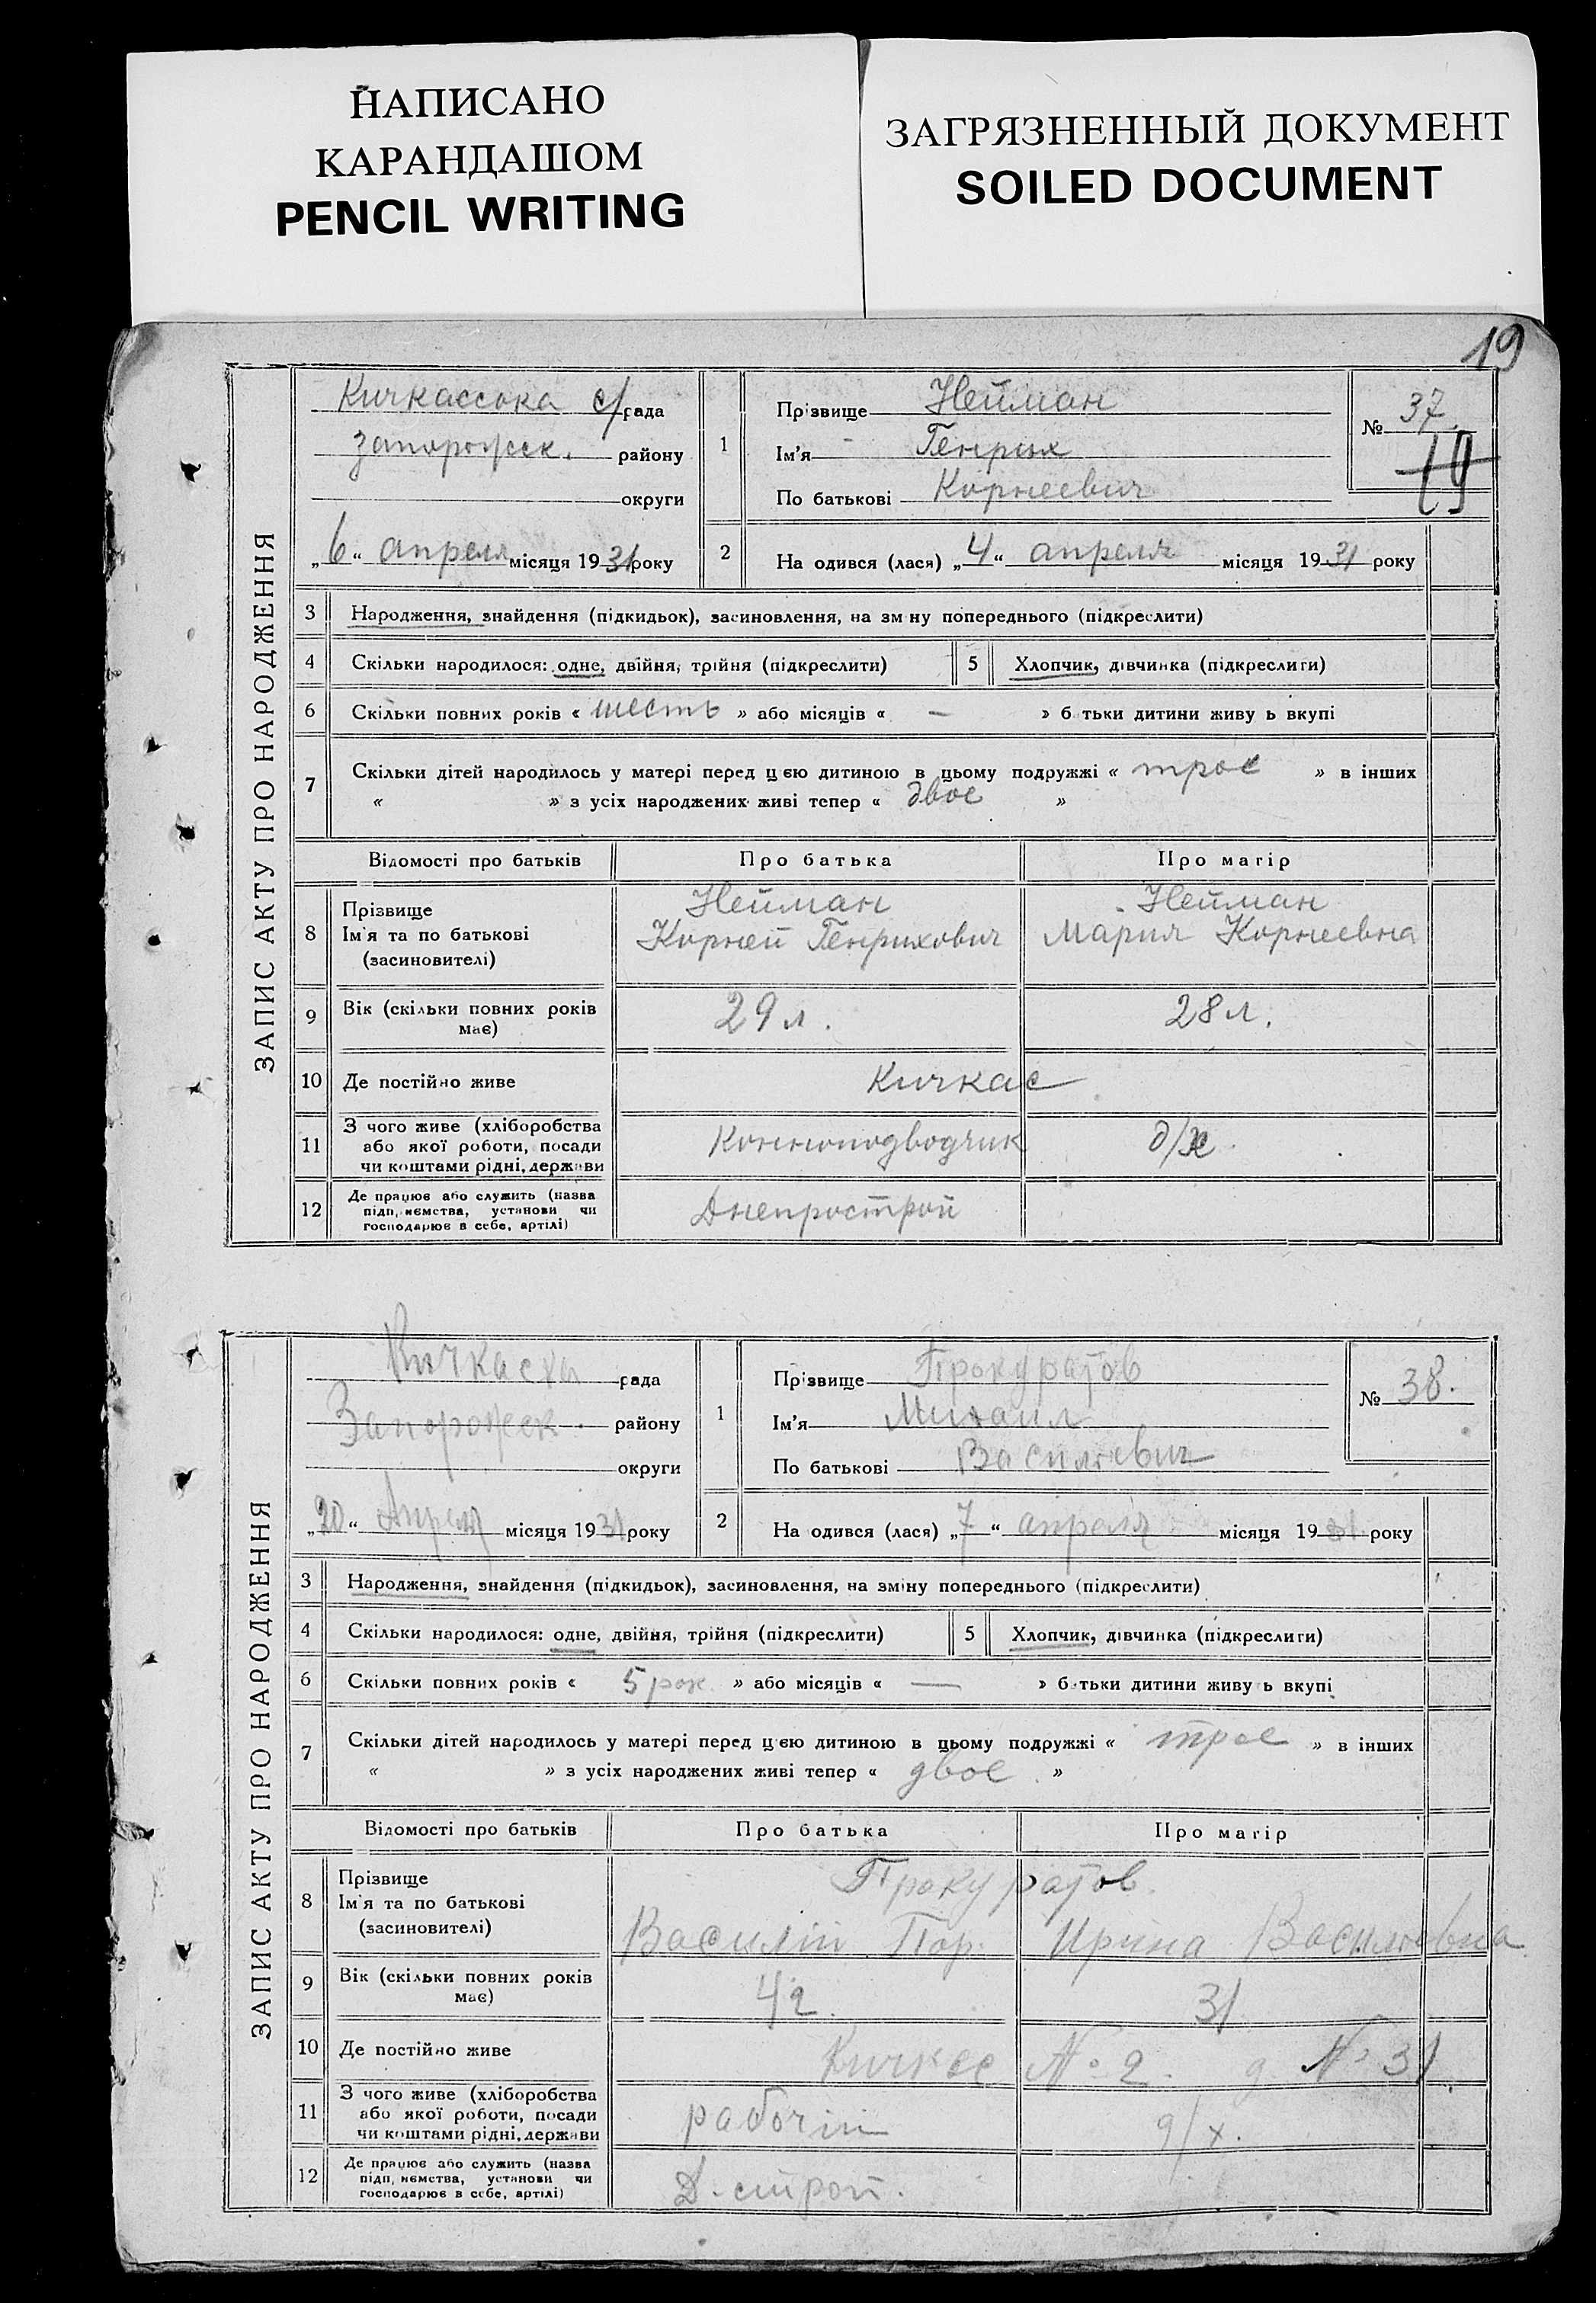 НАПИСАНО
КАРАНДАШОМ
PENCIL WRITING
ЗАГРЯЗНЕННЫЙ ДОКУМЕНТ
SOILED DOCUMENT
19
ЗАПИС АКТУ ПРО НАРОДЖЕННЯ
Кичкасска с/рада
Запорожск. району
округи
„6“ апреля місяця 1931 року
1
Прізвище Нейман
Ім'я Генрих
По батькові Корнеевич
№ 37.
19
2
На одився (лася) „4“ апреля місяця 1931 року
3 Народження, знайдення (підкидьок), засиновлення, на зм ну попереднього (підкреслити)
4 Скільки народилося: одне, двійня, трійня (підкреслити)
5 Хлопчик, дівчинка (підкреслити)
6 Скільки повних років « шесть » або місяців « — » б тьки дитини живу ь вкупі
7 Скільки дітей народилось у матері перед ц єю дитиною в цьому подружжі « трое » в інших
« » з усіх народжених живі тепер « двое »
Відомості про батьків Про батька Про матір
8 Прізвище
Ім'я та по батькові
(засиновителі)
Нейман
Корней Генрихович
Нейман
Мария Корнеевна
9 Вік (скільки повних років
має)
29 л.
28 л.
10 Де постійно живе Кичкас
11 З чого живе (хліборобства
або якої роботи, посади
чи коштами рідні, держави
Конноподводчик
д/х
12 Де працює або служить (назва
підп, ємства, установи чи
господарює в себе, артілі)
Днепрострой
ЗАПИС АКТУ ПРО НАРОДЖЕННЯ
Кичкаска рада
Запорожск. району
округи
„20“ Апреля місяця 1931 року
1
Прізвище Прокуратов
Ім'я Михаил
По батькові Василевич
№ 38.
2
На одився (лася) „7“ апреля місяця 1931 року
3 Народження, знайдення (підкидьок), засиновлення, на зміну попереднього (підкреслити)
4 Скільки народилося: одне, двійня, трійня (підкреслити)
5 Хлопчик, дівчинка (підкреслити)
6 Скільки повних років « 5 рок. » або місяців « — » б тьки дитини живу ь вкупі
7 Скільки дітей народилось у матері перед ц єю дитиною в цьому подружжі « трое » в інших
« » з усіх народжених живі тепер « двое »
Відомості про батьків Про батька Про матір
8 Прізвище
Ім'я та по батькові
(засиновителі)
Прокуратов
Василий Пор.
Ирина Василевна
9 Вік (скільки повних років
має)
42.
31
10 Де постійно живе Кичкас № 2. д № 31
11 З чого живе (хліборобства
або якої роботи, посади
чи коштами рідні, держави
рабочий
д/х.
12 Де працює або служить (назва
підп, ємства, установи чи
господарює в себе, артілі)
Д. строй.